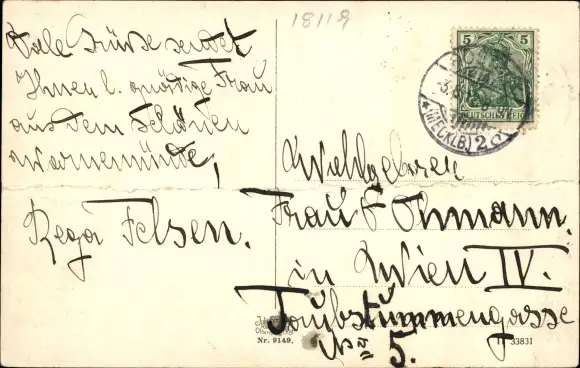 18119
Viele Grüsse sendet
Ihnen l. gnädige Frau
aus dem schönen
Warnemünde,
Rega Felsen.
5 5
DEUTSCHES REICH
(MECKLB) 2
Wohlgeboren
Frau Ohmann.
in Wien IV.
Taubstummengasse
No 5.
Nr. 9149.
33831